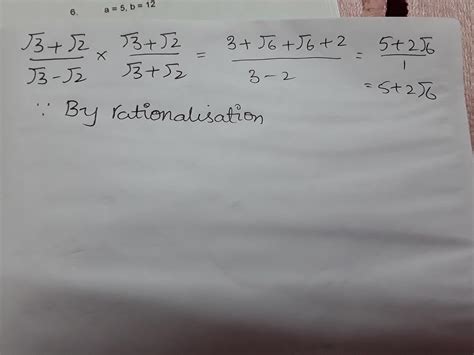 6. a = 5, b = 12
(√3 + √2)/(√3 − √2) × (√3 + √2)/(√3 + √2) = (3 + √6 + √6 + 2)/(3 − 2) = (5 + 2√6)/1
= 5 + 2√6
∵ By rationalisation